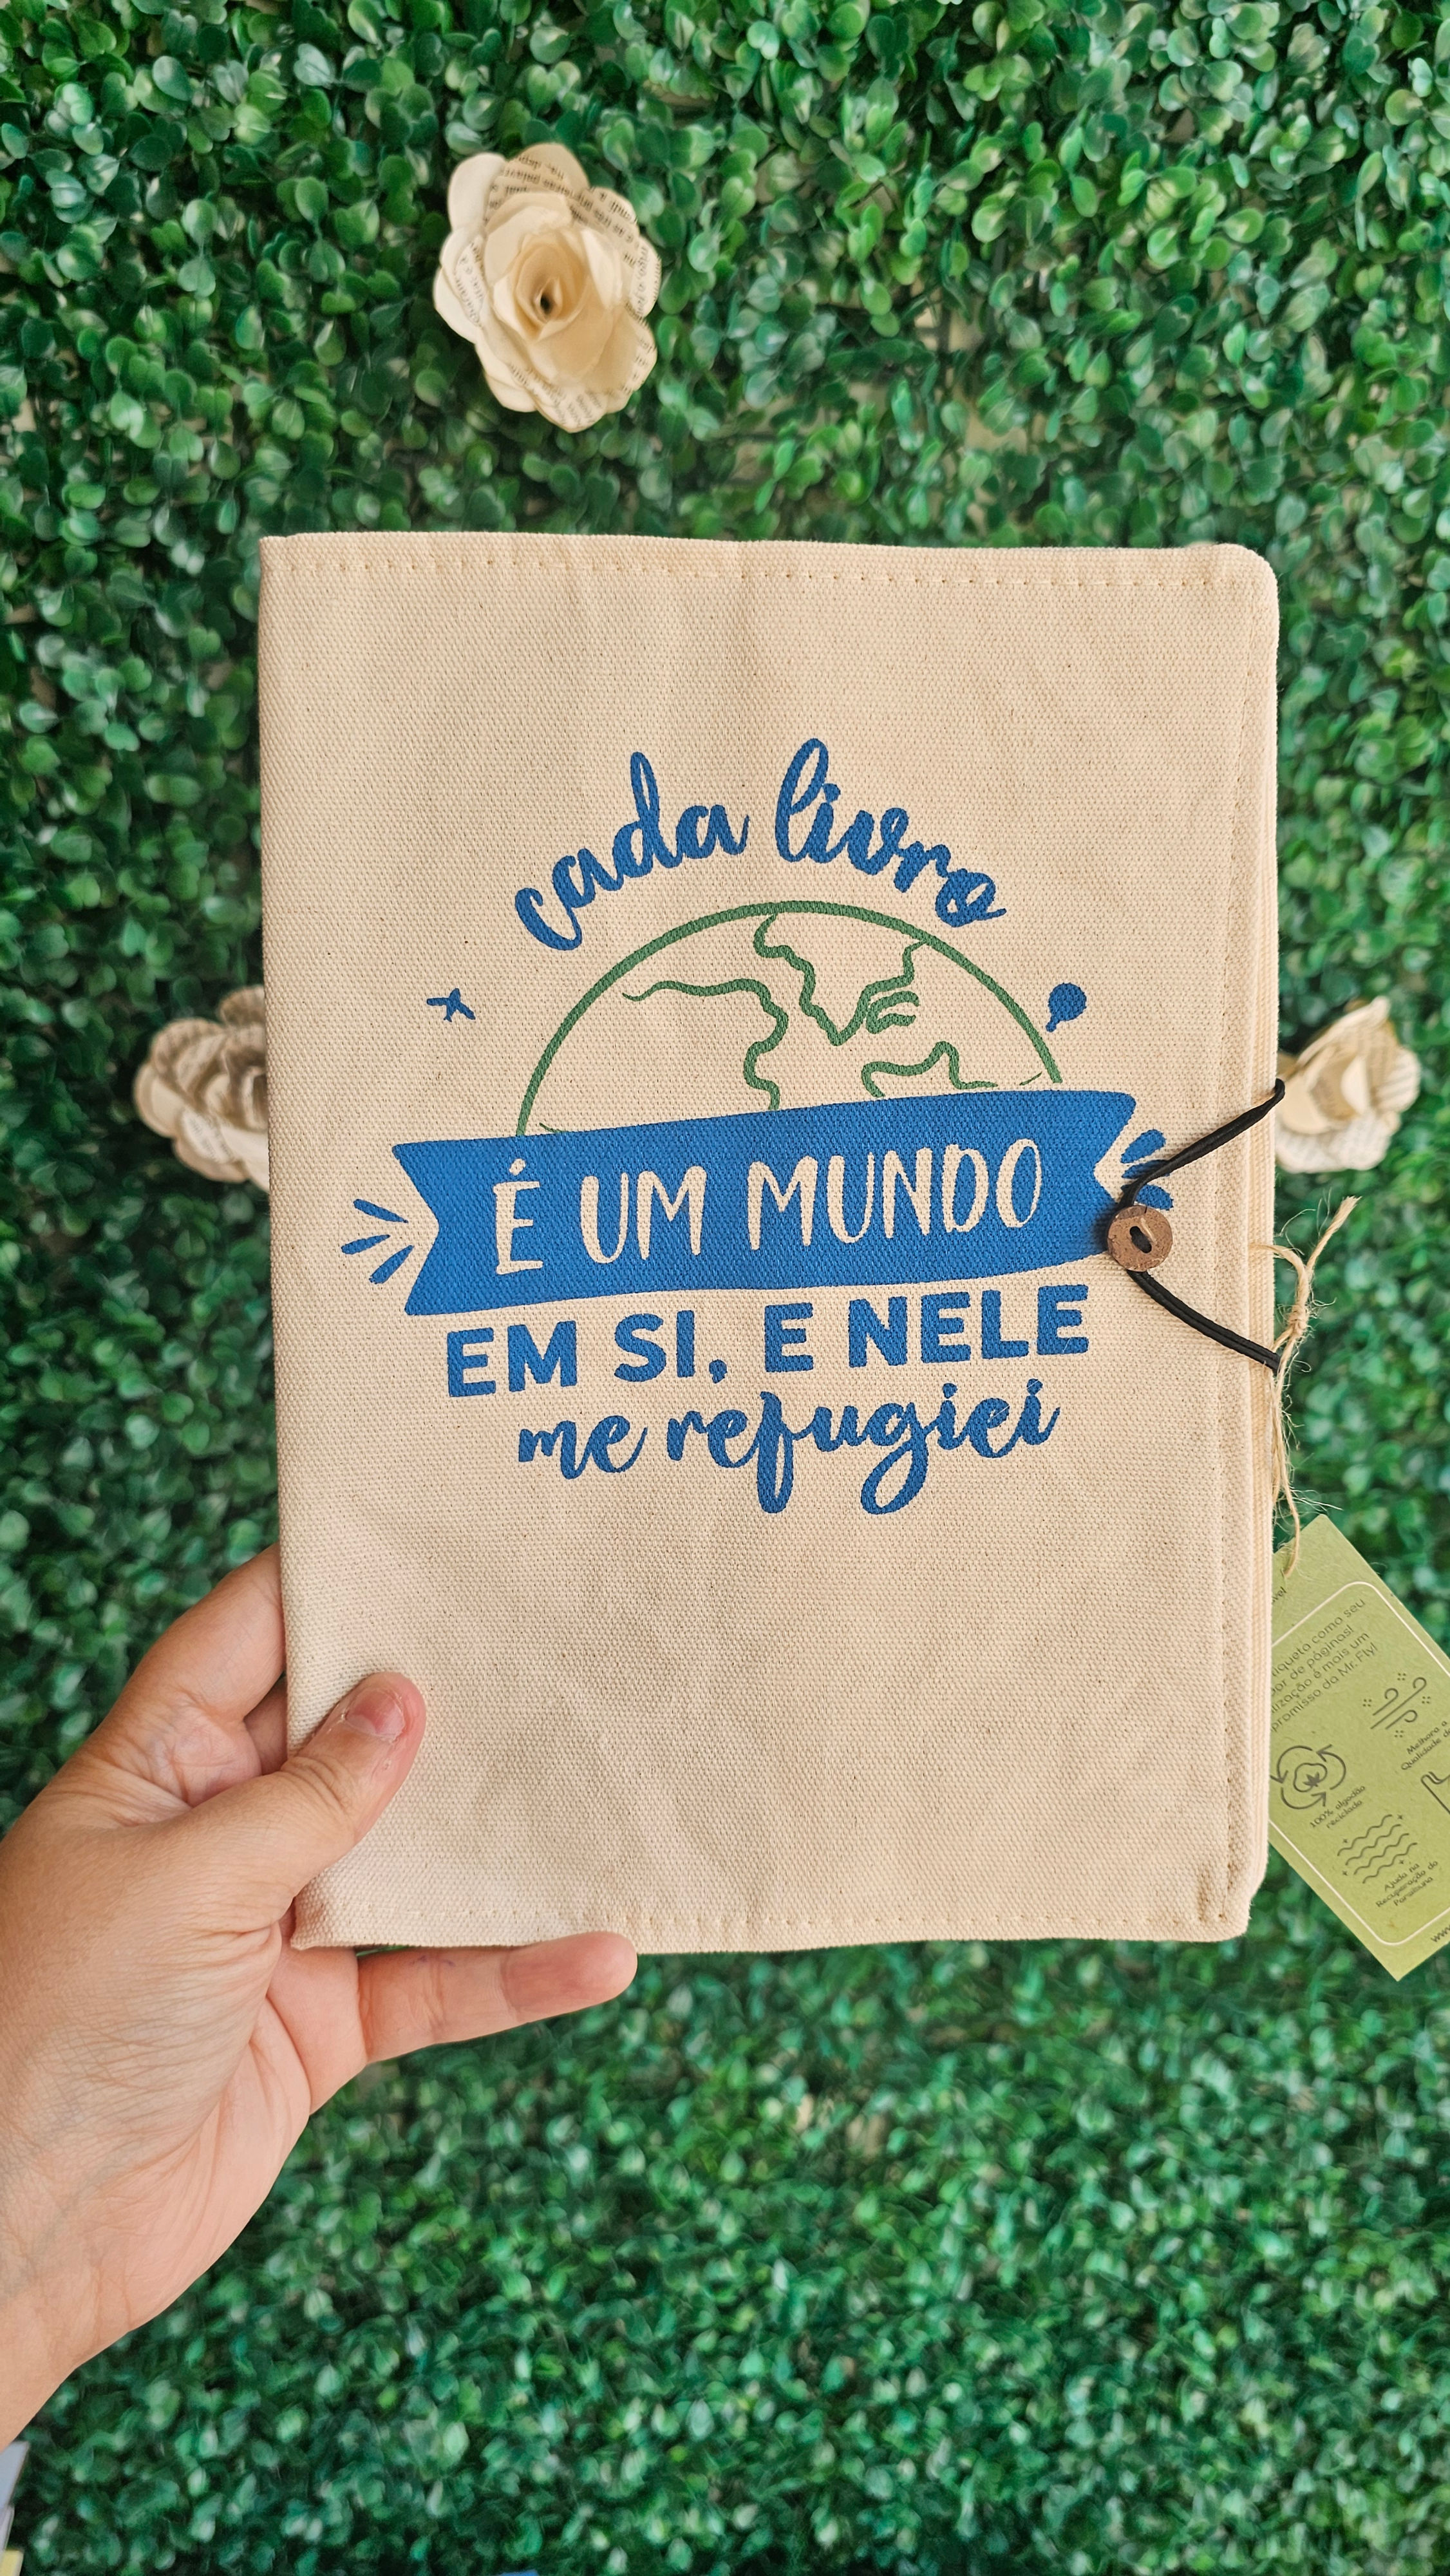 cada livro
É UM MUNDO
EM SI, E NELE
me refugiei
como seu
de páginas!
é mais um
Mr. Fly!
100% algodão
reciclado
Melhora a
Qualidade
Ajuda na
Recuperação do